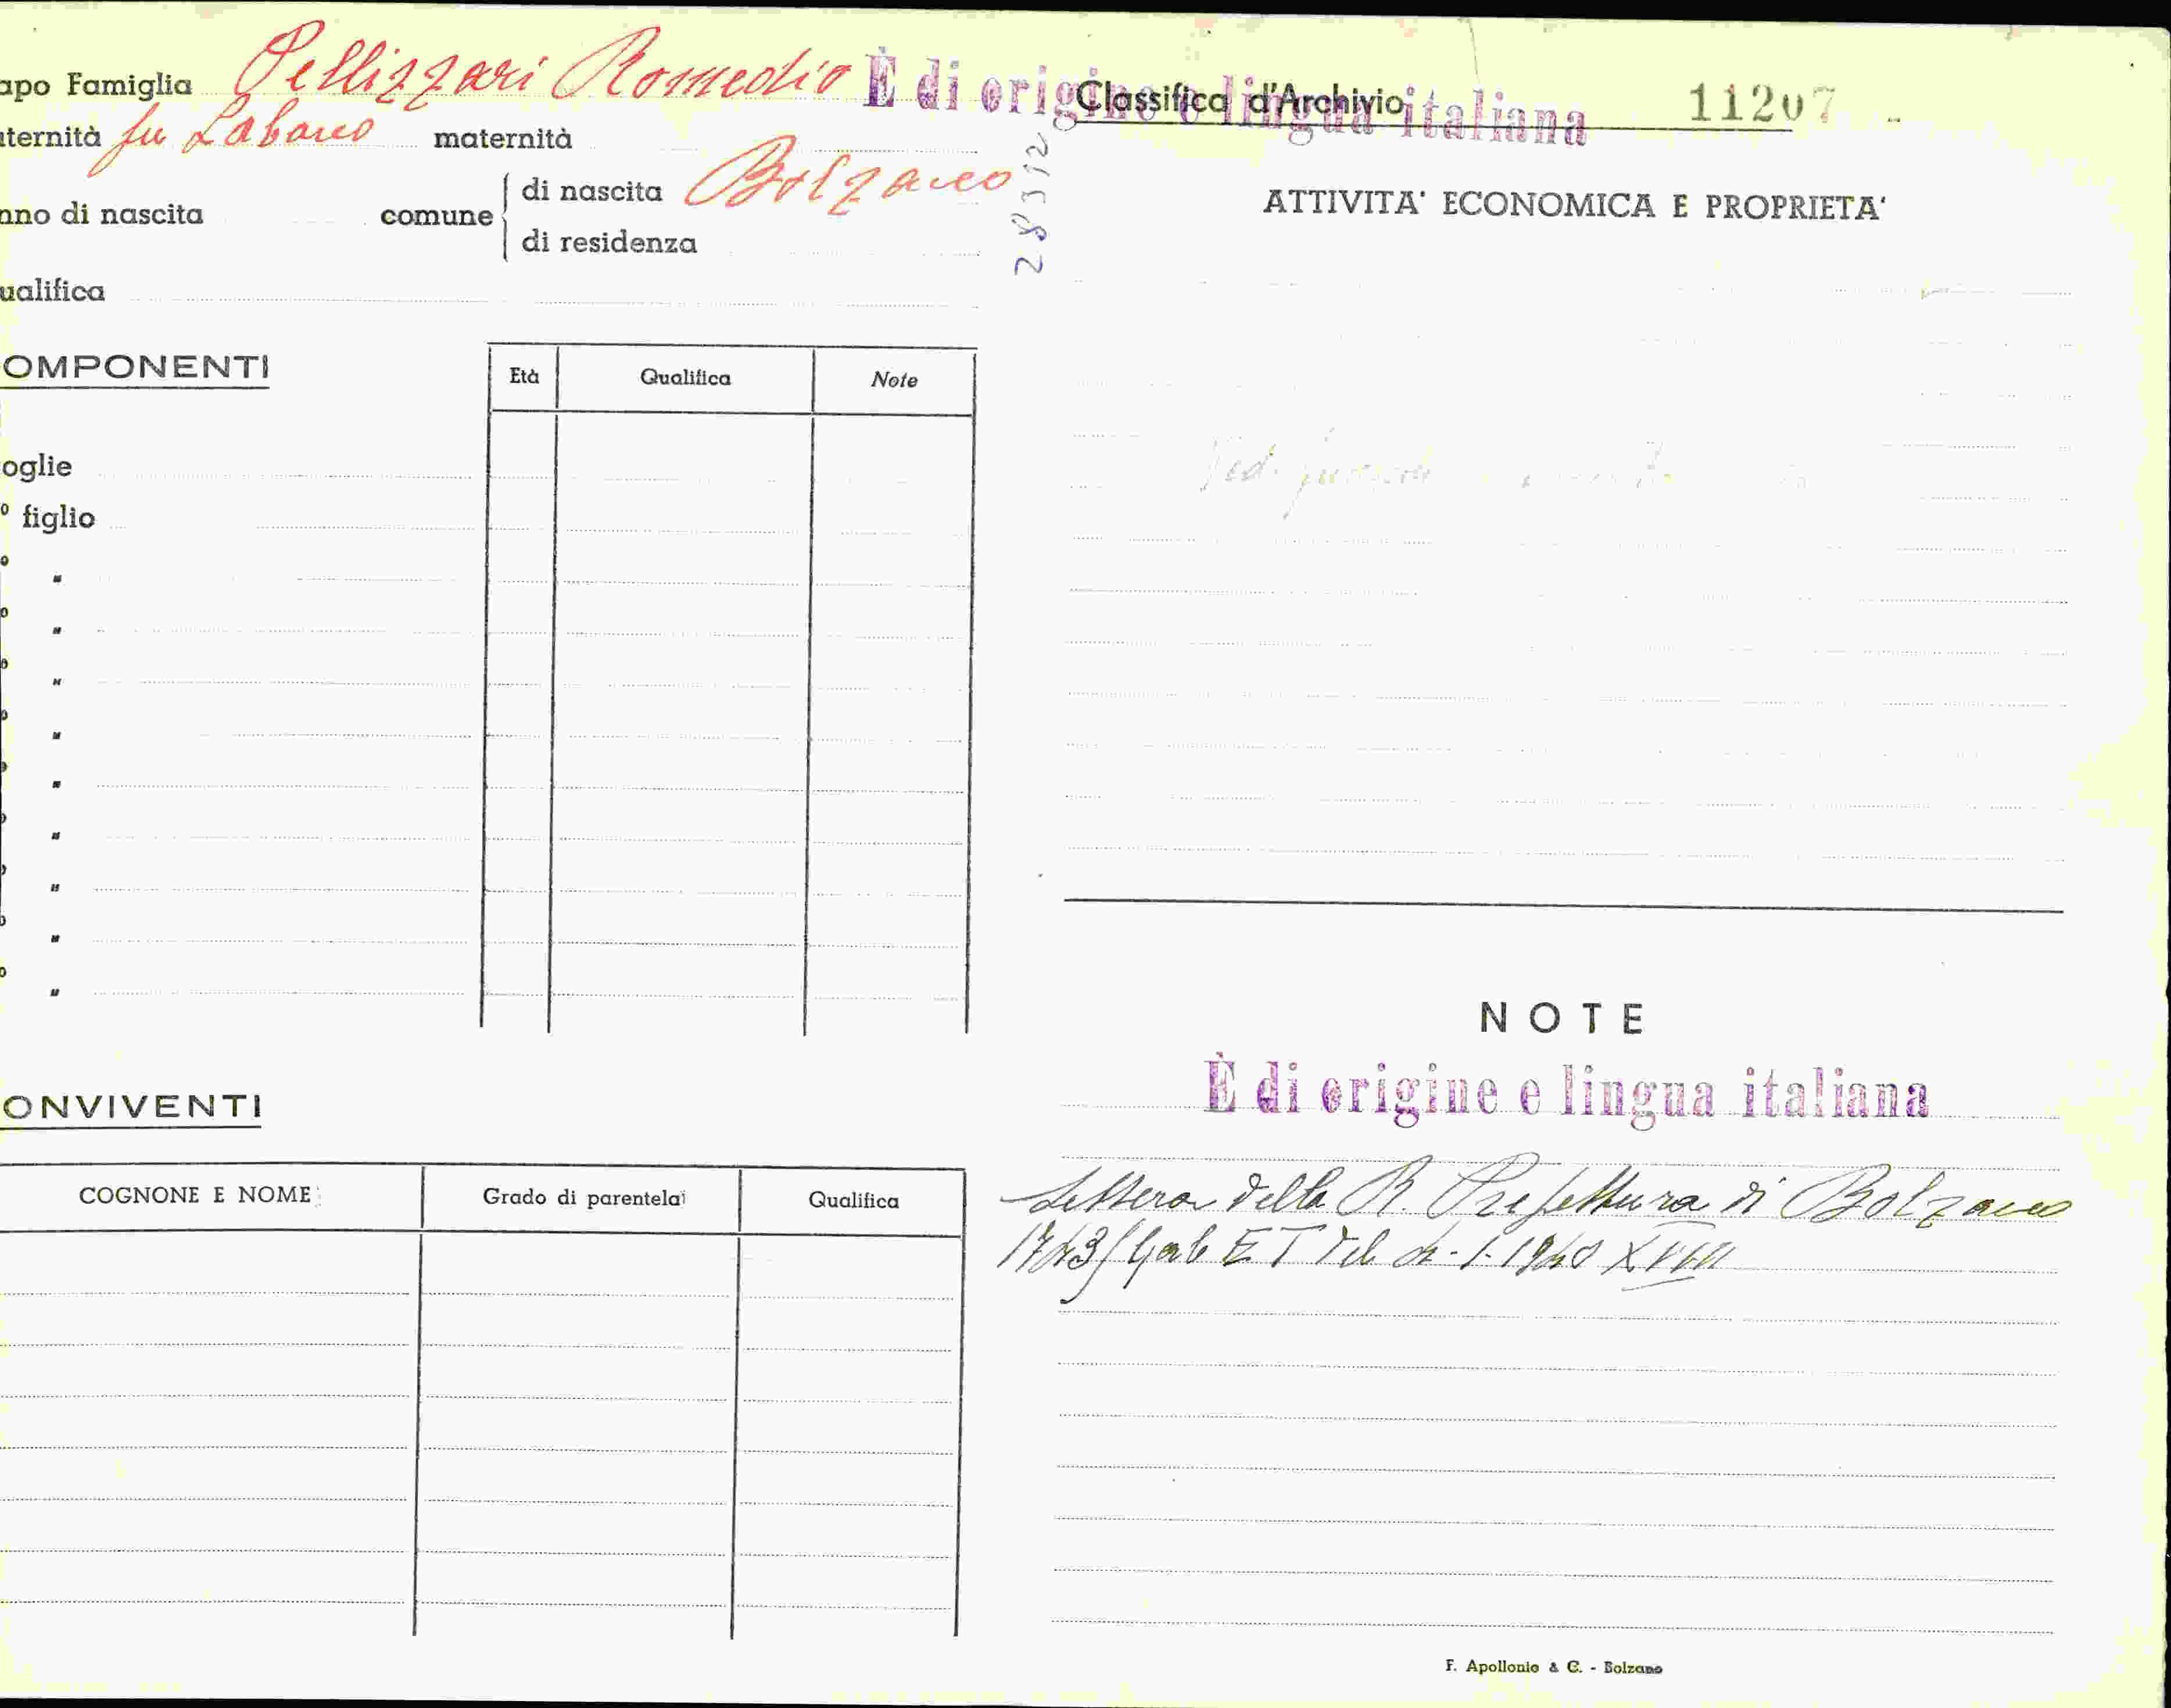 apo Famiglia Pellizzari Romedio
È di origine e lingua italiana
Classifica d'Archivio 11207
ternità fu Labano maternità
nno di nascita comune
di nascita Bolzano
di residenza
28312
ualifica
OMPONENTI
Età Qualifica Note
oglie
º figlio
º "
º "
º "
º "
º "
º "
º "
º "
º "
ONVIVENTI
COGNONE E NOME Grado di parentela Qualifica
ATTIVITA' ECONOMICA E PROPRIETA'
Ved.
NOTE
È di origine e lingua italiana
Lettera della R. Prefettura di Bolzano
Gab ET del 1-1940 XVIII
F. Apollonio & C. - Bolzano